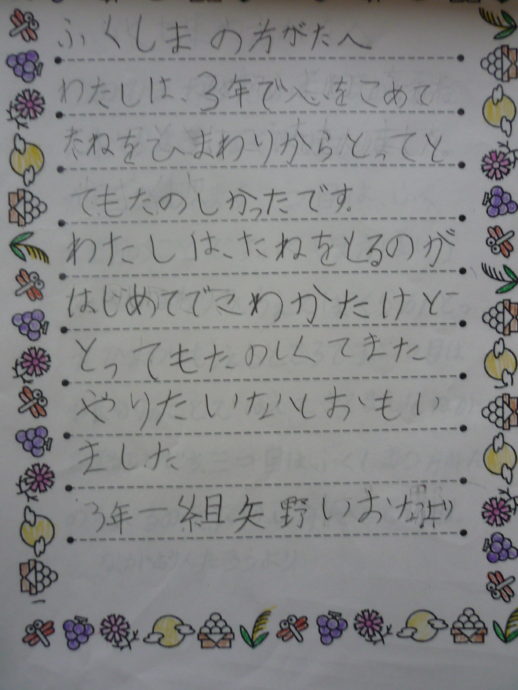 ふくしまの方がたへ
わたしは、3年で心をこめて
たねをひまわりからとってと
てもたのしかったです。
わたしは、たねをとるのが
はじめてでこわかたけど
とってもたのしくてまた
やりたいなとおもい
ました
3年一組矢野いお より